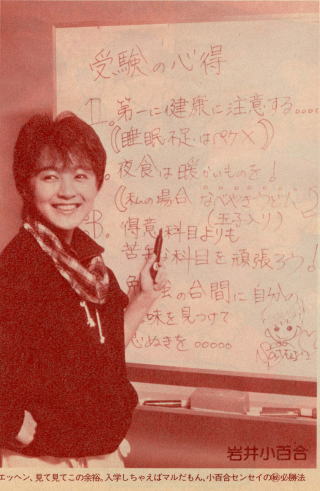 受験の心得
1. 第一に健康に注意する....
(睡眠不足はペケ×)
夜食は暖かいものを!
(私の場合 なべやきうどん)
(玉子入り)
B. 得意科目よりも
苦手な科目を頑張ろう!
勉強の合間に自分の
味を見つけて
ぬきを.....
岩井小百合
エッヘン、見て見てこの余裕。入学しちゃえばマルだもん、小百合センセイの㊙必勝法